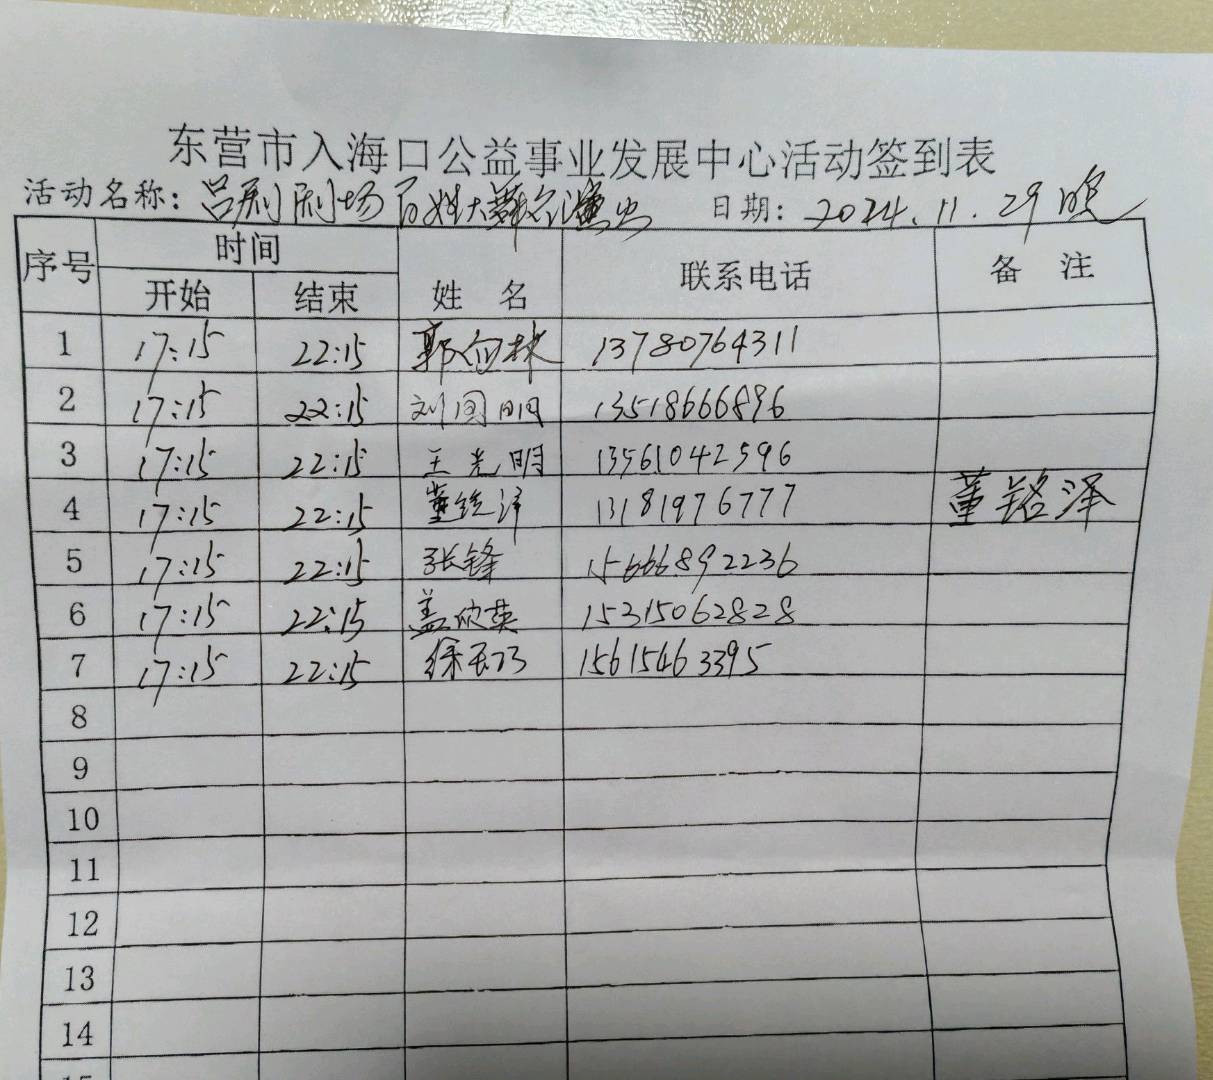 东营市入海口公益事业发展中心活动签到表
活动名称：吕剧剧场百姓大舞台演出 日期：2024.11.29晚
序号 时间 姓名 联系电话 备注
开始 结束
1 17:15 22:15 郭向林 13780764311
2 17:15 22:15 刘国明 13518666896
3 17:15 22:15 王光明 13561042596
4 17:15 22:15 董铭泽 13181976777 董铭泽
5 17:15 22:15 张锋 15666892236
6 17:15 22:15 盖欣英 15315062828
7 17:15 22:15 徐 15615463395
8
9
10
11
12
13
14